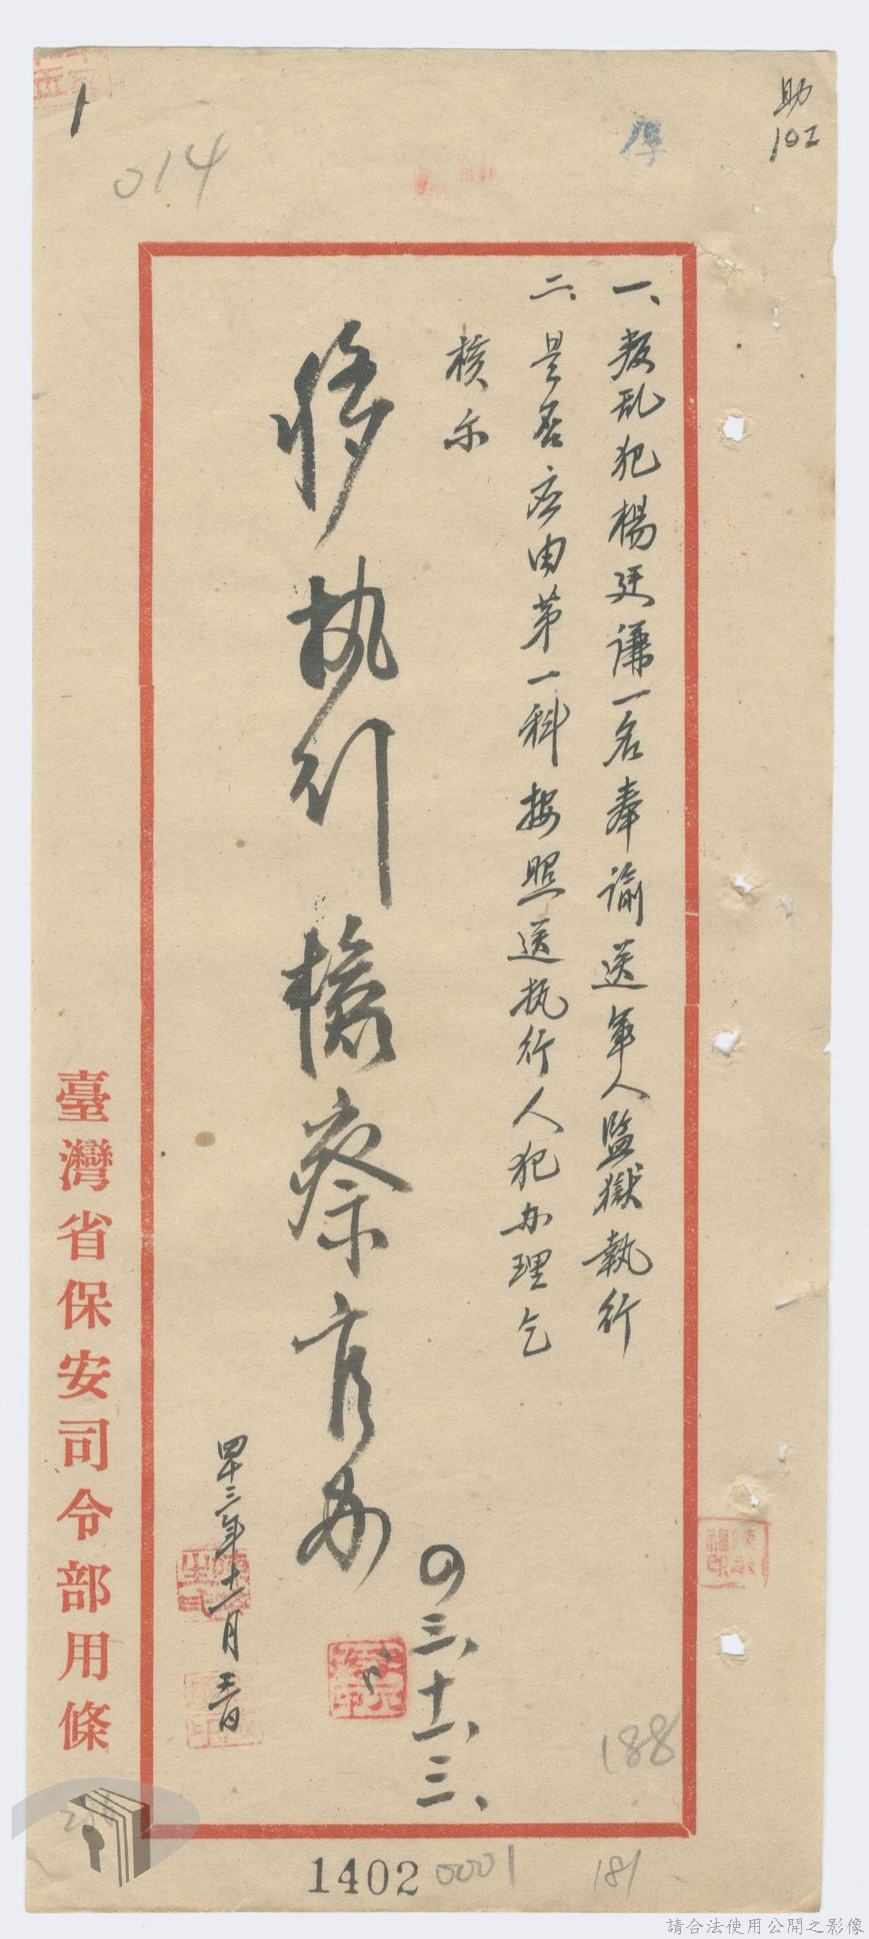 助
102
014
一、叛乱犯楊廷謙一名奉諭送軍人監獄執行
二、是否应由第一科按照送执行人犯办理乞
核示
移执行檢察官办
四三、十一、三、
四十三年十一月三日
臺灣省保安司令部用條
188
181
1402
0001
請合法使用公開之影像